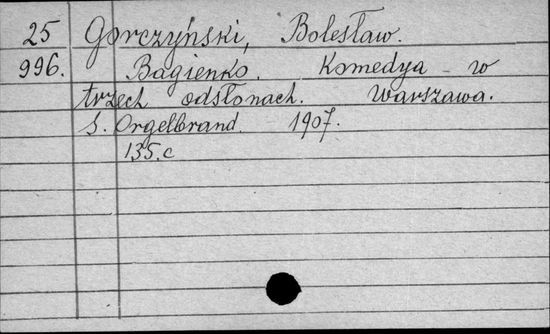 25 Gorczyński, Bolesław.
996. Bagienko. Komedya w
trzech odsłonach. Warszawa.
S. Orgelbrand. 1907.
135.c